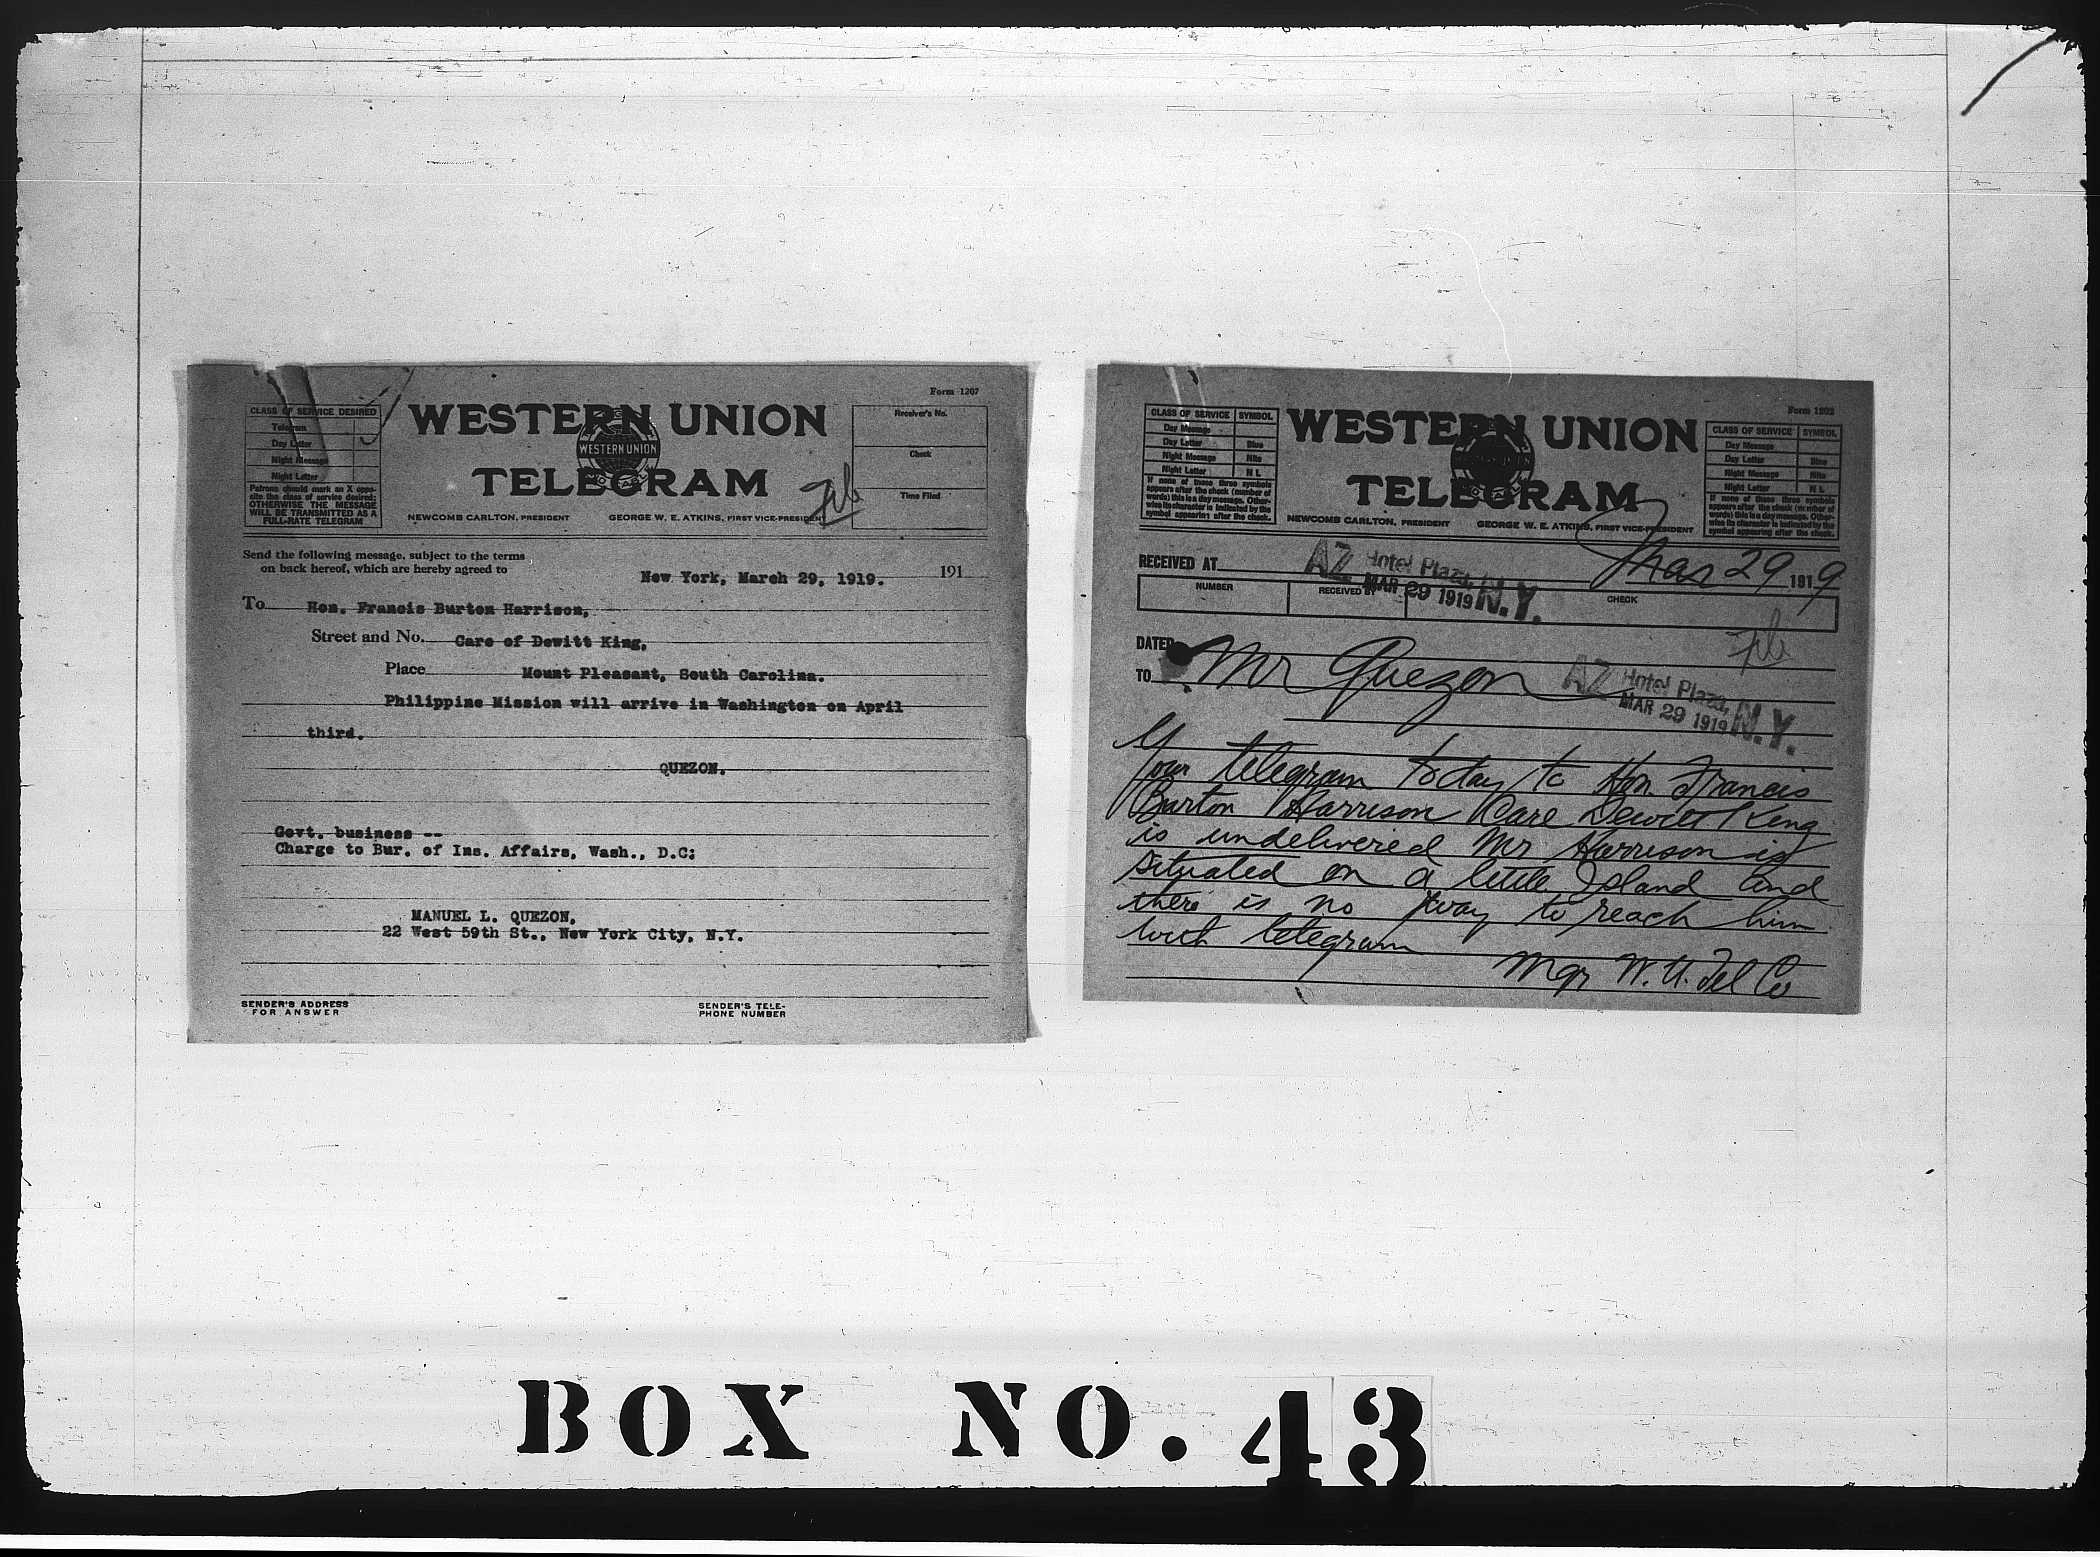 Form 1207
CLASS OF SERVICE DESIRED
Telegram
Day Letter
Night Message
Night Letter
Patrons should mark an X oppo-
site the class of service desired;
OTHERWISE THE MESSAGE
WILL BE TRANSMITTED AS A
FULL-RATE TELEGRAM
WESTERN UNION
WESTERN UNION
TELEGRAM
NEWCOMB CARLTON, PRESIDENT GEORGE W. E. ATKINS, FIRST VICE-PRESIDENT
Receiver's No.
Check
Time Filed
Send the following message, subject to the terms
on back hereof, which are hereby agreed to
New York, March 29, 1919. 191
To Hon. Francis Burton Harrison,
Street and No. Care of Dewitt King,
Place Mount Pleasant, South Carolina.
Philippine Mission will arrive in Washington on April
third.
QUEZON.
Govt. business --
Charge to Bur. of Ins. Affairs, Wash., D.C;
MANUEL L. QUEZON,
22 West 59th St., New York City, N.Y.
SENDER'S ADDRESS
FOR ANSWER
SENDER'S TELE-
PHONE NUMBER
CLASS OF SERVICE SYMBOL
Day Message
Day Letter Blue
Night Message Nite
Night Letter N L
If none of these three symbols
appears after the check (number of
words) this is a day message. Other-
wise its character is indicated by the
symbol appearing after the check.
WESTERN UNION
TELEGRAM
NEWCOMB CARLTON, PRESIDENT GEORGE W. E. ATKINS, FIRST VICE-PRESIDENT
Form 1202
CLASS OF SERVICE SYMBOL
Day Message
Day Letter Blue
Night Message Nite
Night Letter N L
If none of these three symbols
appears after the check (number of
words) this is a day message. Other-
wise its character is indicated by the
symbol appearing after the check.
RECEIVED AT
AZ Hotel Plaza, N.Y.
MAR 29 1919
Mar 29 1919
NUMBER RECEIVED BY CHECK
DATED
TO Mr Quezon
AZ Hotel Plaza, N.Y.
MAR 29 1919
Your telegram today to Hon. Francis
Burton Harrison Care Dewitt King
is undelivered Mr Harrison is
situated on a little Island and
there is no way to reach him
with telegram
Mgr W.U. Tel Co
BOX NO. 43